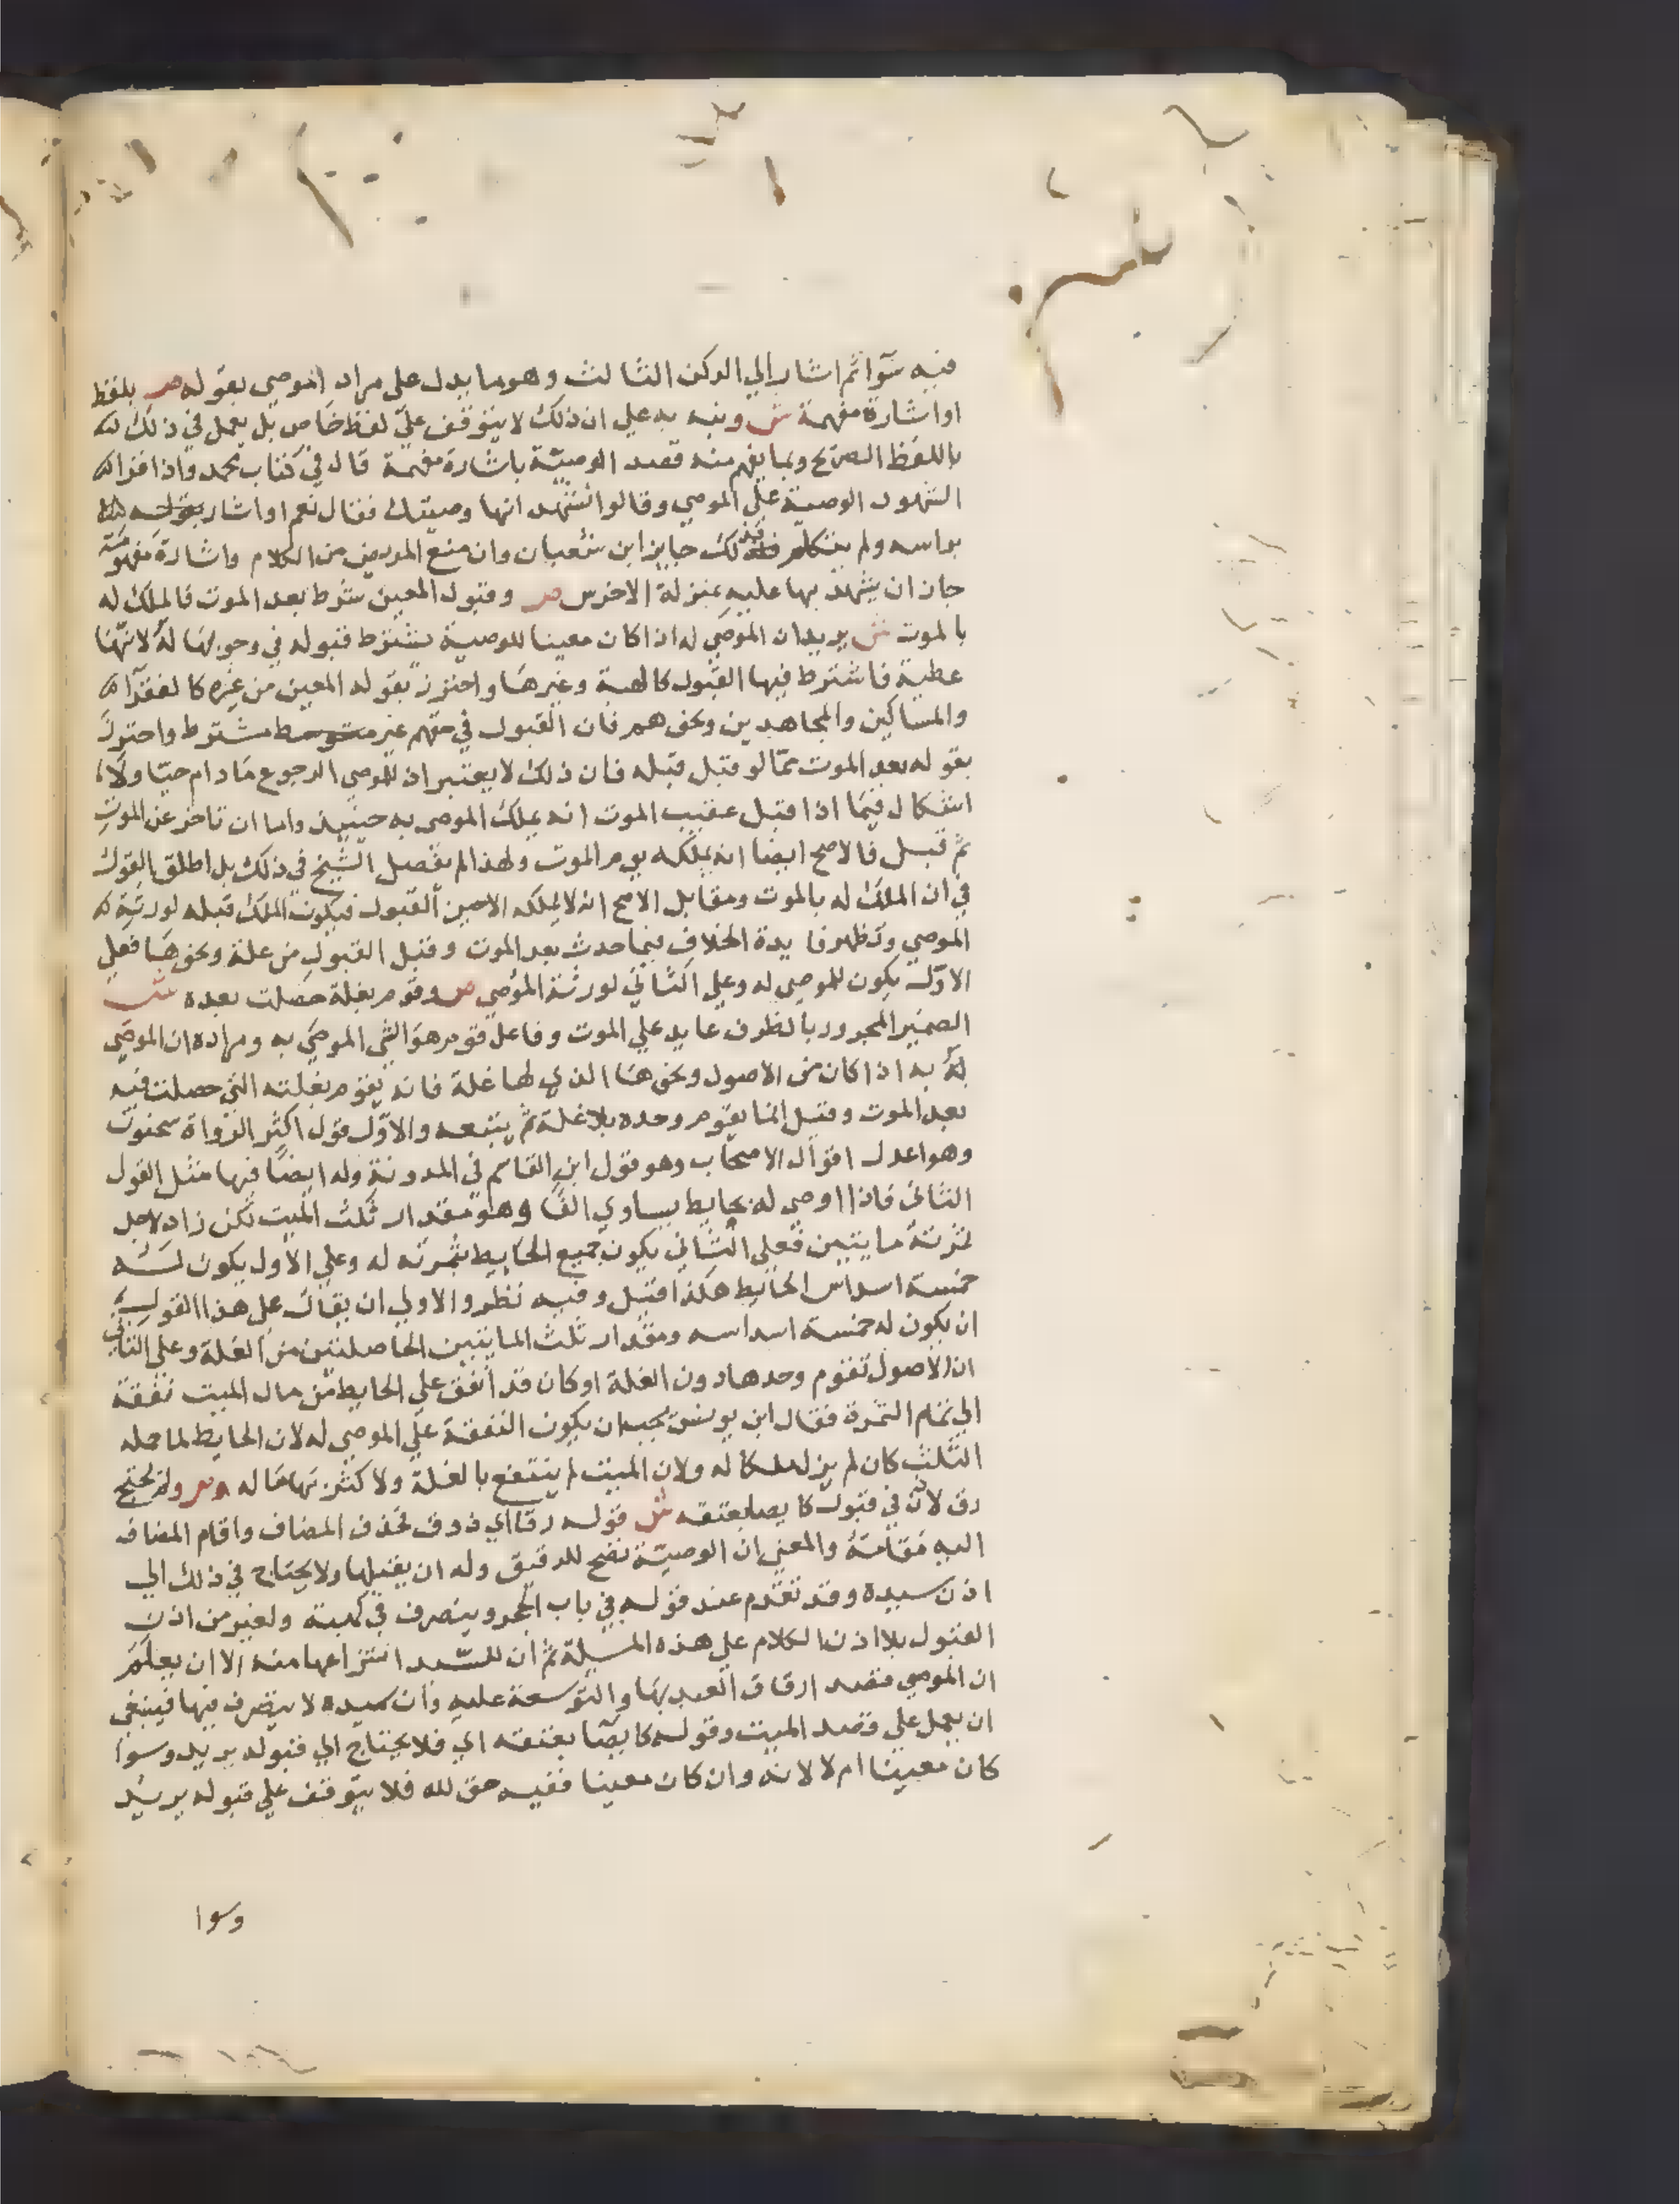 فيه سوآ ثم اشار الي الركن الثالث وهو ما يدل على مراد الموصي بقوله ص بلفظ
او اشارة مفهمة ش ونبه به علي ان ذلك لا يتوقف علي لفظ خاص بل يعمل في ذلك
باللفظ الصريح وبما يفهم منه قصد الوصية باشارة مفهمة قال في كتاب محمد واذا اقرا
الشهود الوصية علي الموصي وقالوا نشهد انها وصيتك فقال نعم او اشار
براسه ولم يتكلم فذلك جايز ابن شعبان وان منع المريض من الكلام واشارة مفهومة
جاز ان يشهد بها عليه بمنزلة الاخرس ص وقبول المعين شرط بعد الموت فالملك له
بالموت ش يريد ان الموصي له اذا كان معينا للوصية يشترط قبوله في وجوبها له لانها
عطية فاشترط فيها القبول كالهبة وغيرها واحترز بقوله المعين من غيره كالفقرآ
والمساكين والمجاهدين ونحوهم فان القبول في حقهم غير مشترط واحترز
بقوله بعد الموت مما لو قبل قبله فان ذلك لا يعتبر اذ للموصي الرجوع مادام حيا ولا
اشكال فيما اذا قبل عقيب الموت انه يملك الموصى به حينيذ واما ان تاخر عن الموت
ثم قبل فالاصح ايضا انه يملكه يوم الموت ولهذا لم يفصل الشيخ في ذلك بل اطلق القول
في ان الملك له بالموت ومقابل الاصح انه لا يملكه الا حين القبول فيكون الملك قبله لورثة
الموصي وتظهر فايدة الخلاف فيما حدث بعد الموت وقبل القبول من غلة ونحوها فعلي
الاول يكون للموصي له وعلي الثاني لورثة الموصي ص وقوم بغلة حصلت بعده ش
الضمير المجرور بالظرف عايد علي الموت وفاعل قوم هو الشي الموصي به ومراده ان الموصي
له به اذا كان من الاصول ونحوها الذي لها غلة فانه يقوم بغلته التي حصلت فيه
بعد الموت وقيل انما يقوم وحده بلا غلة ثم يتبعه والاول قول اكثر الرواة سحنون
وهو اعدل اقوال الاصحاب وهو قول ابن القاسم في المدونة وله ايضا فيها مثل القول
الثاني فاذا اوصي له بحايط يساوي الفا وهو مقدار ثلث الميت لكن زاد لاجل
ثمرته مايتين فعلي الثاني يكون جميع الحايط بثمرته له وعلي الاول يكون له
خمسة اسداس الحايط هكذا قيل وفيه نظر والاولي ان يقال على هذا القول
ان يكون له خمسة اسداسه ومقدار ثلث المايتين الحاصلتين من الغلة وعلي الثاني
ان الاصول تقوم وحدها دون الغلة او كان قد انفق علي الحايط من مال الميت نفقة
الي تمام الثمرة فقال ابن يونس يجب ان يكون النفقة علي الموصي له لان الحايط لما حمله
الثلث كان لم يزل ملكا له ولان الميت لم ينتفع بالغلة ولا كثر بها ماله ص ولم يحتج
رق لاذن في قبول كايصا بعتقه ش قوله رق اي ذو رق فحذف المضاف واقام المضاف
اليه مقامه والمعني ان الوصية تصح للرقيق وله ان يقبلها ولا يحتاج في ذلك الي
اذن سيده وقد تقدم عند قوله في باب الحجر ويتصرف في كهبة ولغير من اذن
القبول بلا اذن الكلام علي هذه المسيلة ثم ان للسيد انتزاعها منه الا ان يعلم
ان الموصي قصد ارفاق العبد بها والتوسعة عليه وان سيده لا يتصرف فيها فينبغي
ان يعمل علي قصد الميت وقوله كايصآ بعتقه اي فلا يحتاج الي قبوله يريد وسوا
كان معينا ام لا لانه وان كان معينا ففيه حق لله فلا يتوقف علي قبوله يريد
وسوا